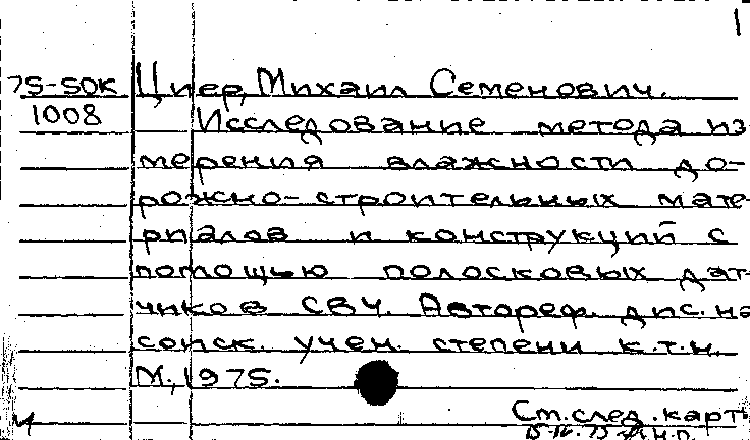 1
75-50КЦипер, Михаил Семенович.
1008 Исследование метода из
мерения влажности до-
рожно-строительных мате-
риалов и конструкций с
помощью полосковых дат-
чиков СВЧ. Автореф. дис. на
соиск. учен. степени к.т.н.
М., 1975.
См. след. карт